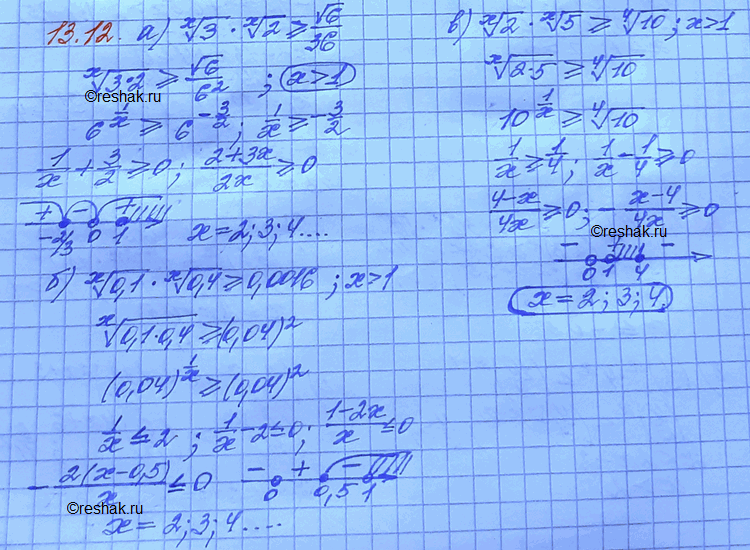 13.12. а) ˣ√3 · ˣ√2 ≥ √6/36
ˣ√(3·2) ≥ √6/6² ; x>1
©reshak.ru
6^(1/x) ≥ 6^(-3/2) ; 1/x ≥ -3/2
1/x + 3/2 ≥ 0 ; (2+3x)/2x ≥ 0
+ − +
-2/3 0 1
x = 2; 3; 4....
б) ˣ√0,1 · ˣ√0,4 ≥ 0,0016 ; x>1
ˣ√(0,1·0,4) ≥ (0,04)²
(0,04)^(1/x) ≥ (0,04)²
1/x ≤ 2 ; 1/x - 2 ≤ 0 ; (1-2x)/x ≤ 0
- 2(x-0,5)/x ≤ 0
− + −
0 0,5 1
©reshak.ru
x = 2; 3; 4....
в) ˣ√2 · ˣ√5 ≥ ⁴√10 ; x>1
ˣ√(2·5) ≥ ⁴√10
10^(1/x) ≥ ⁴√10
1/x ≥ 1/4 ; 1/x - 1/4 ≥ 0
(4-x)/4x ≥ 0 ; - (x-4)/4x ≥ 0
©reshak.ru
− + −
0 1 4
x = 2; 3; 4.